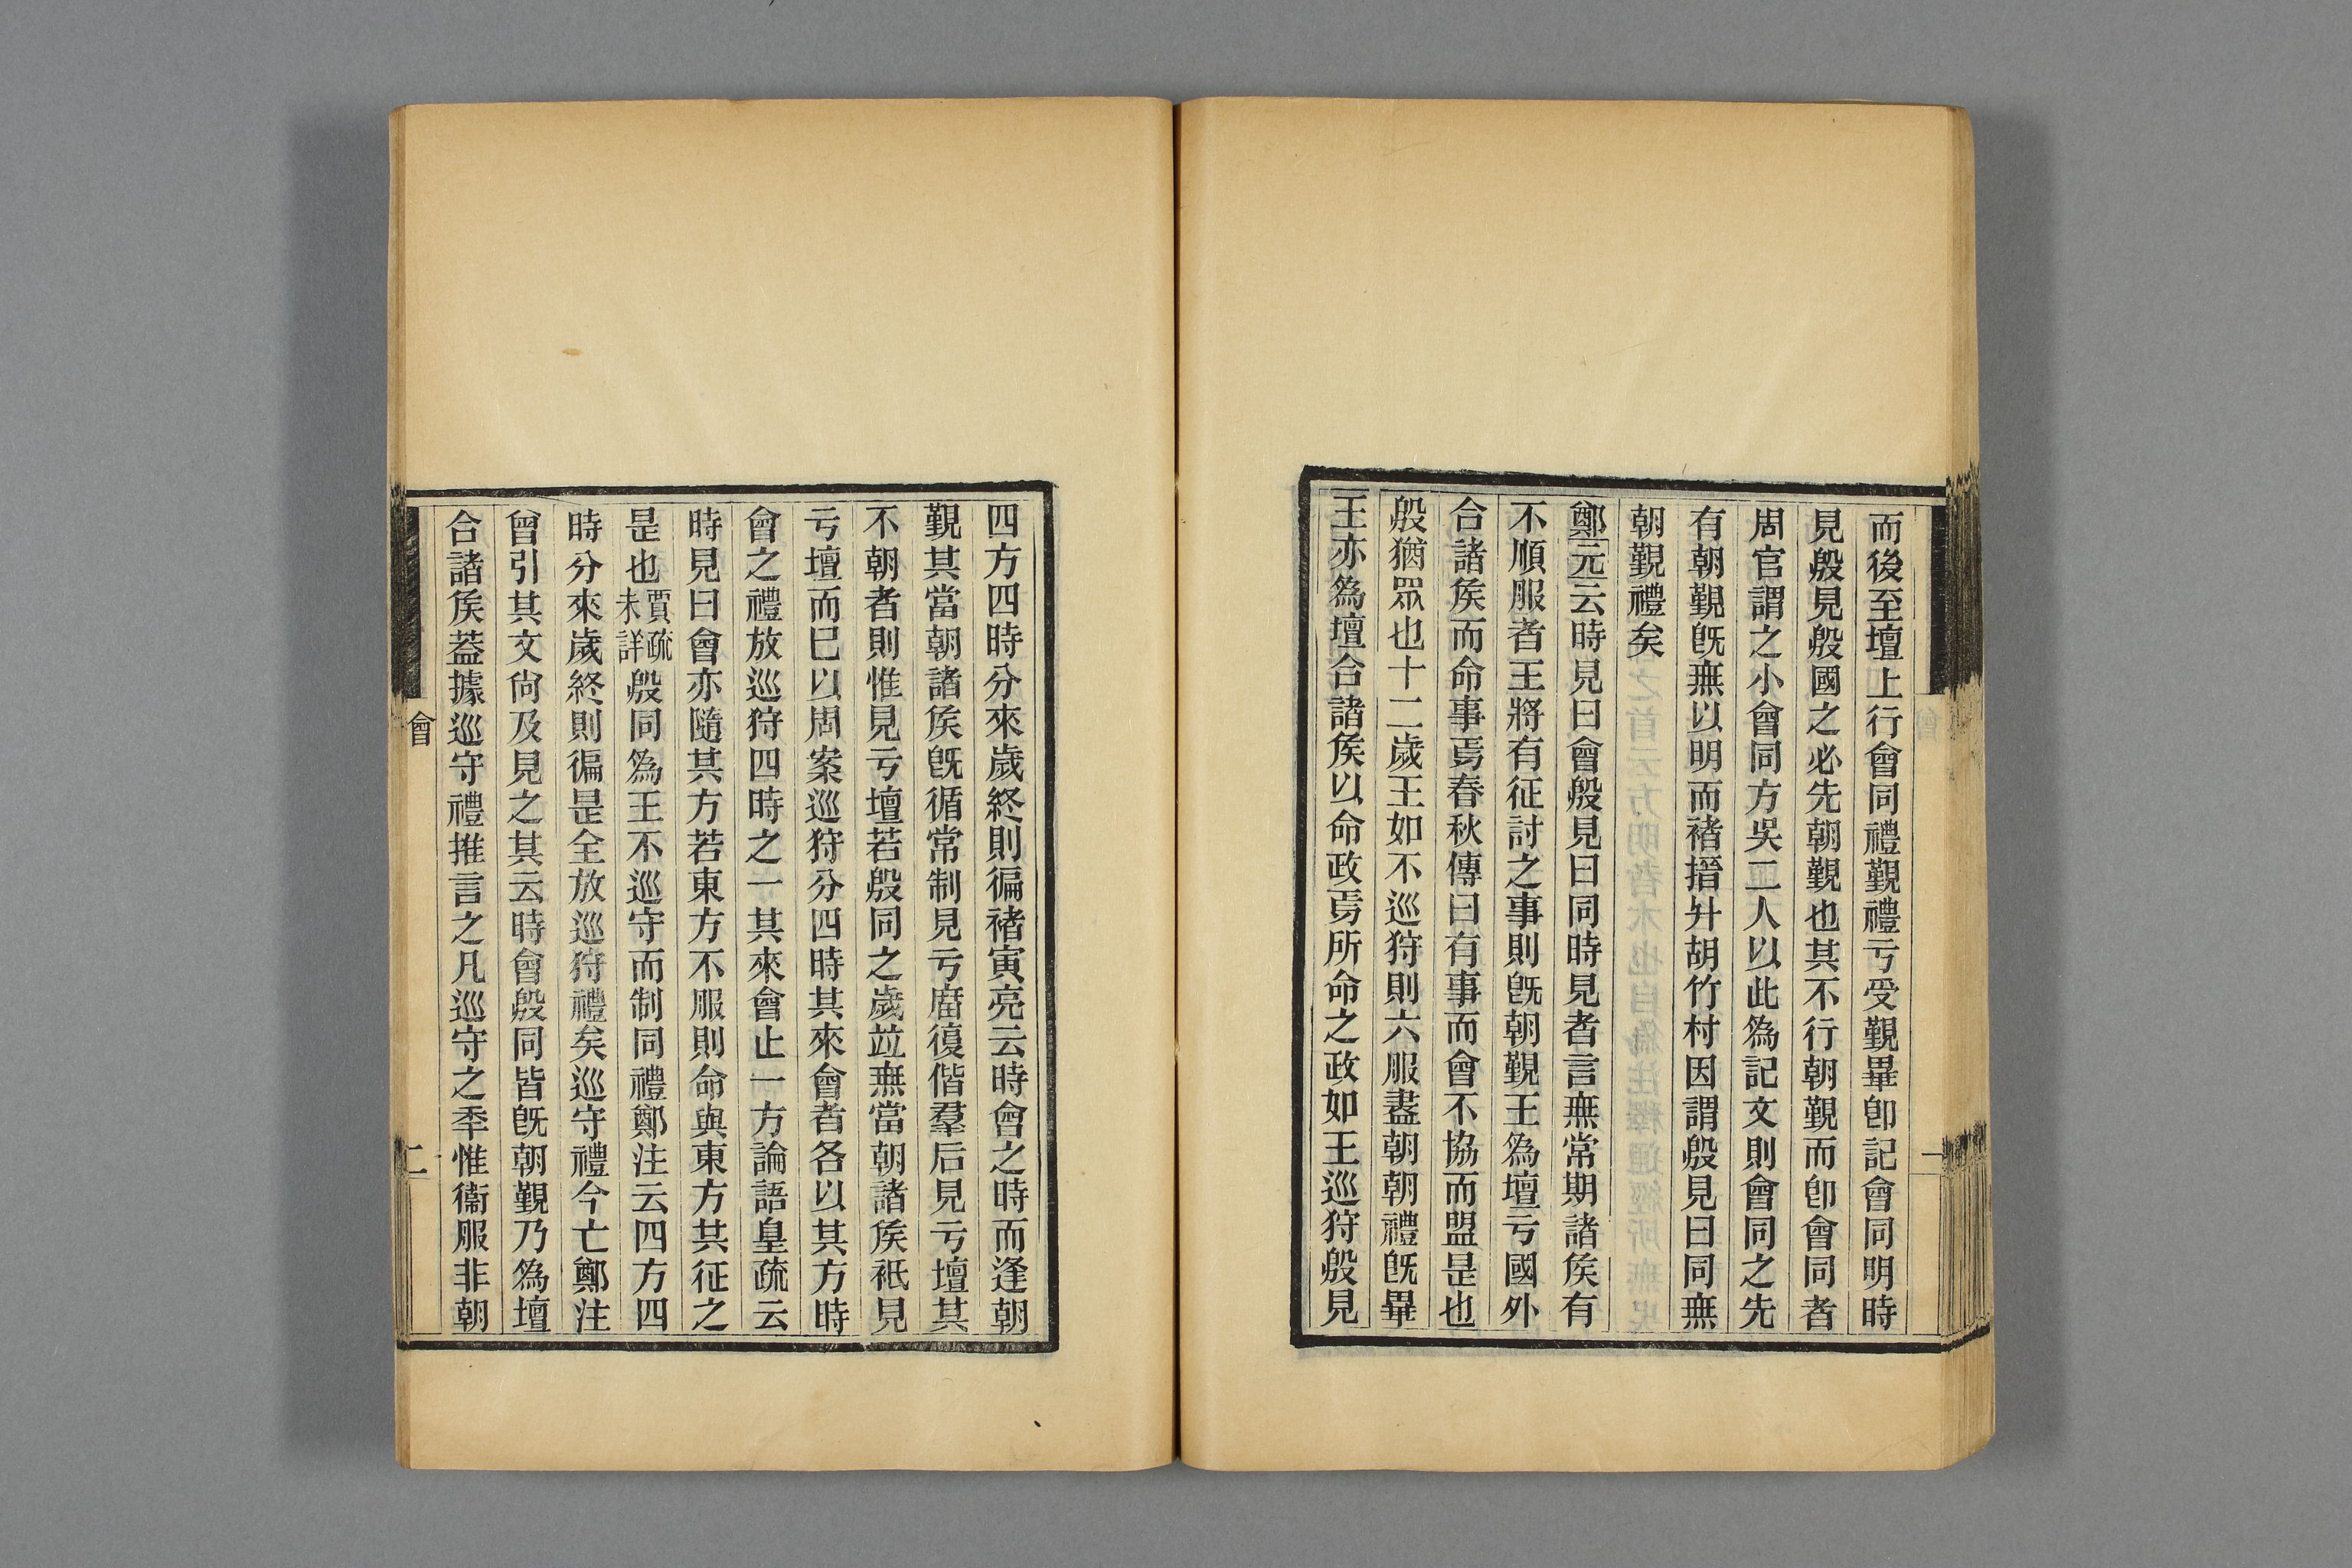 而後至壇上行會同禮覲禮亏受覲畢卽記會同明時
見殷見殷國之必先朝覲也其不行朝覲而卽會同者
周官謂之小會同方吳二人以此爲記文則會同之先
有朝覲旣無以明而褚搢升胡竹村因謂殷見曰同無
朝覲禮矣
鄭元云時見曰會殷見曰同時見者言無常期諸矦有
不順服者王將有征討之事則旣朝覲王爲壇亏國外
合諸矦而命事焉春秋傳曰有事而會不協而盟是也
殷猶眾也十二歲王如不巡狩則六服盡朝朝禮旣畢
王亦爲壇合諸矦以命政焉所命之政如王巡狩殷見
四方四時分來歲終則徧褚寅亮云時會之時而逢朝
覲其當朝諸矦旣循常制見亏庿復偕羣后見亏壇其
不朝者則惟見亏壇若殷同之歲竝無當朝諸矦祇見
亏壇而巳以周案巡狩分四時其來會者各以其方時
會之禮放巡狩四時之一其來會止一方論語皇疏云
時見曰會亦隨其方若東方不服則命與東方共征之
是也賈疏未詳殷同爲王不巡守而制同禮鄭注云四方四
時分來歲終則徧是全放巡狩禮矣巡守禮今亡鄭注
曾引其文尙及見之其云時會殷同皆旣朝覲乃爲壇
合諸矦葢據巡守禮推言之凡巡守之秊惟衞服非朝
會
二